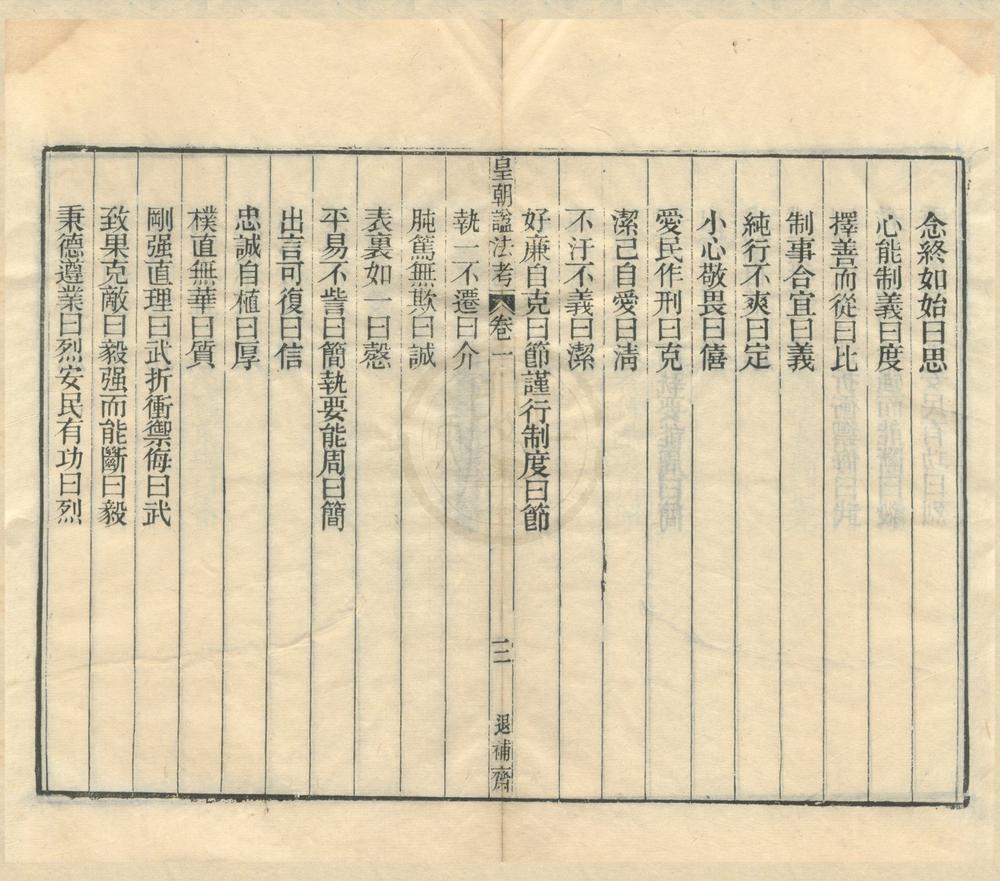 念終如始曰思
心能制義曰度
擇善而從曰比
制事合宜曰義
純行不爽曰定
小心敬畏曰僖
愛民作刑曰克
潔己自愛曰清
不汙不義曰潔
好廉自克曰節謹行制度曰節
皇朝諡法考 卷一 三 退補齋
執一不遷曰介
肫篤無欺曰誠
表裏如一曰慤
平易不訾曰簡執要能周曰簡
出言可復曰信
忠誠自植曰厚
樸直無華曰質
剛强直理曰武折衝禦侮曰武
致果克敵曰毅强而能斷曰毅
秉德遵業曰烈安民有功曰烈